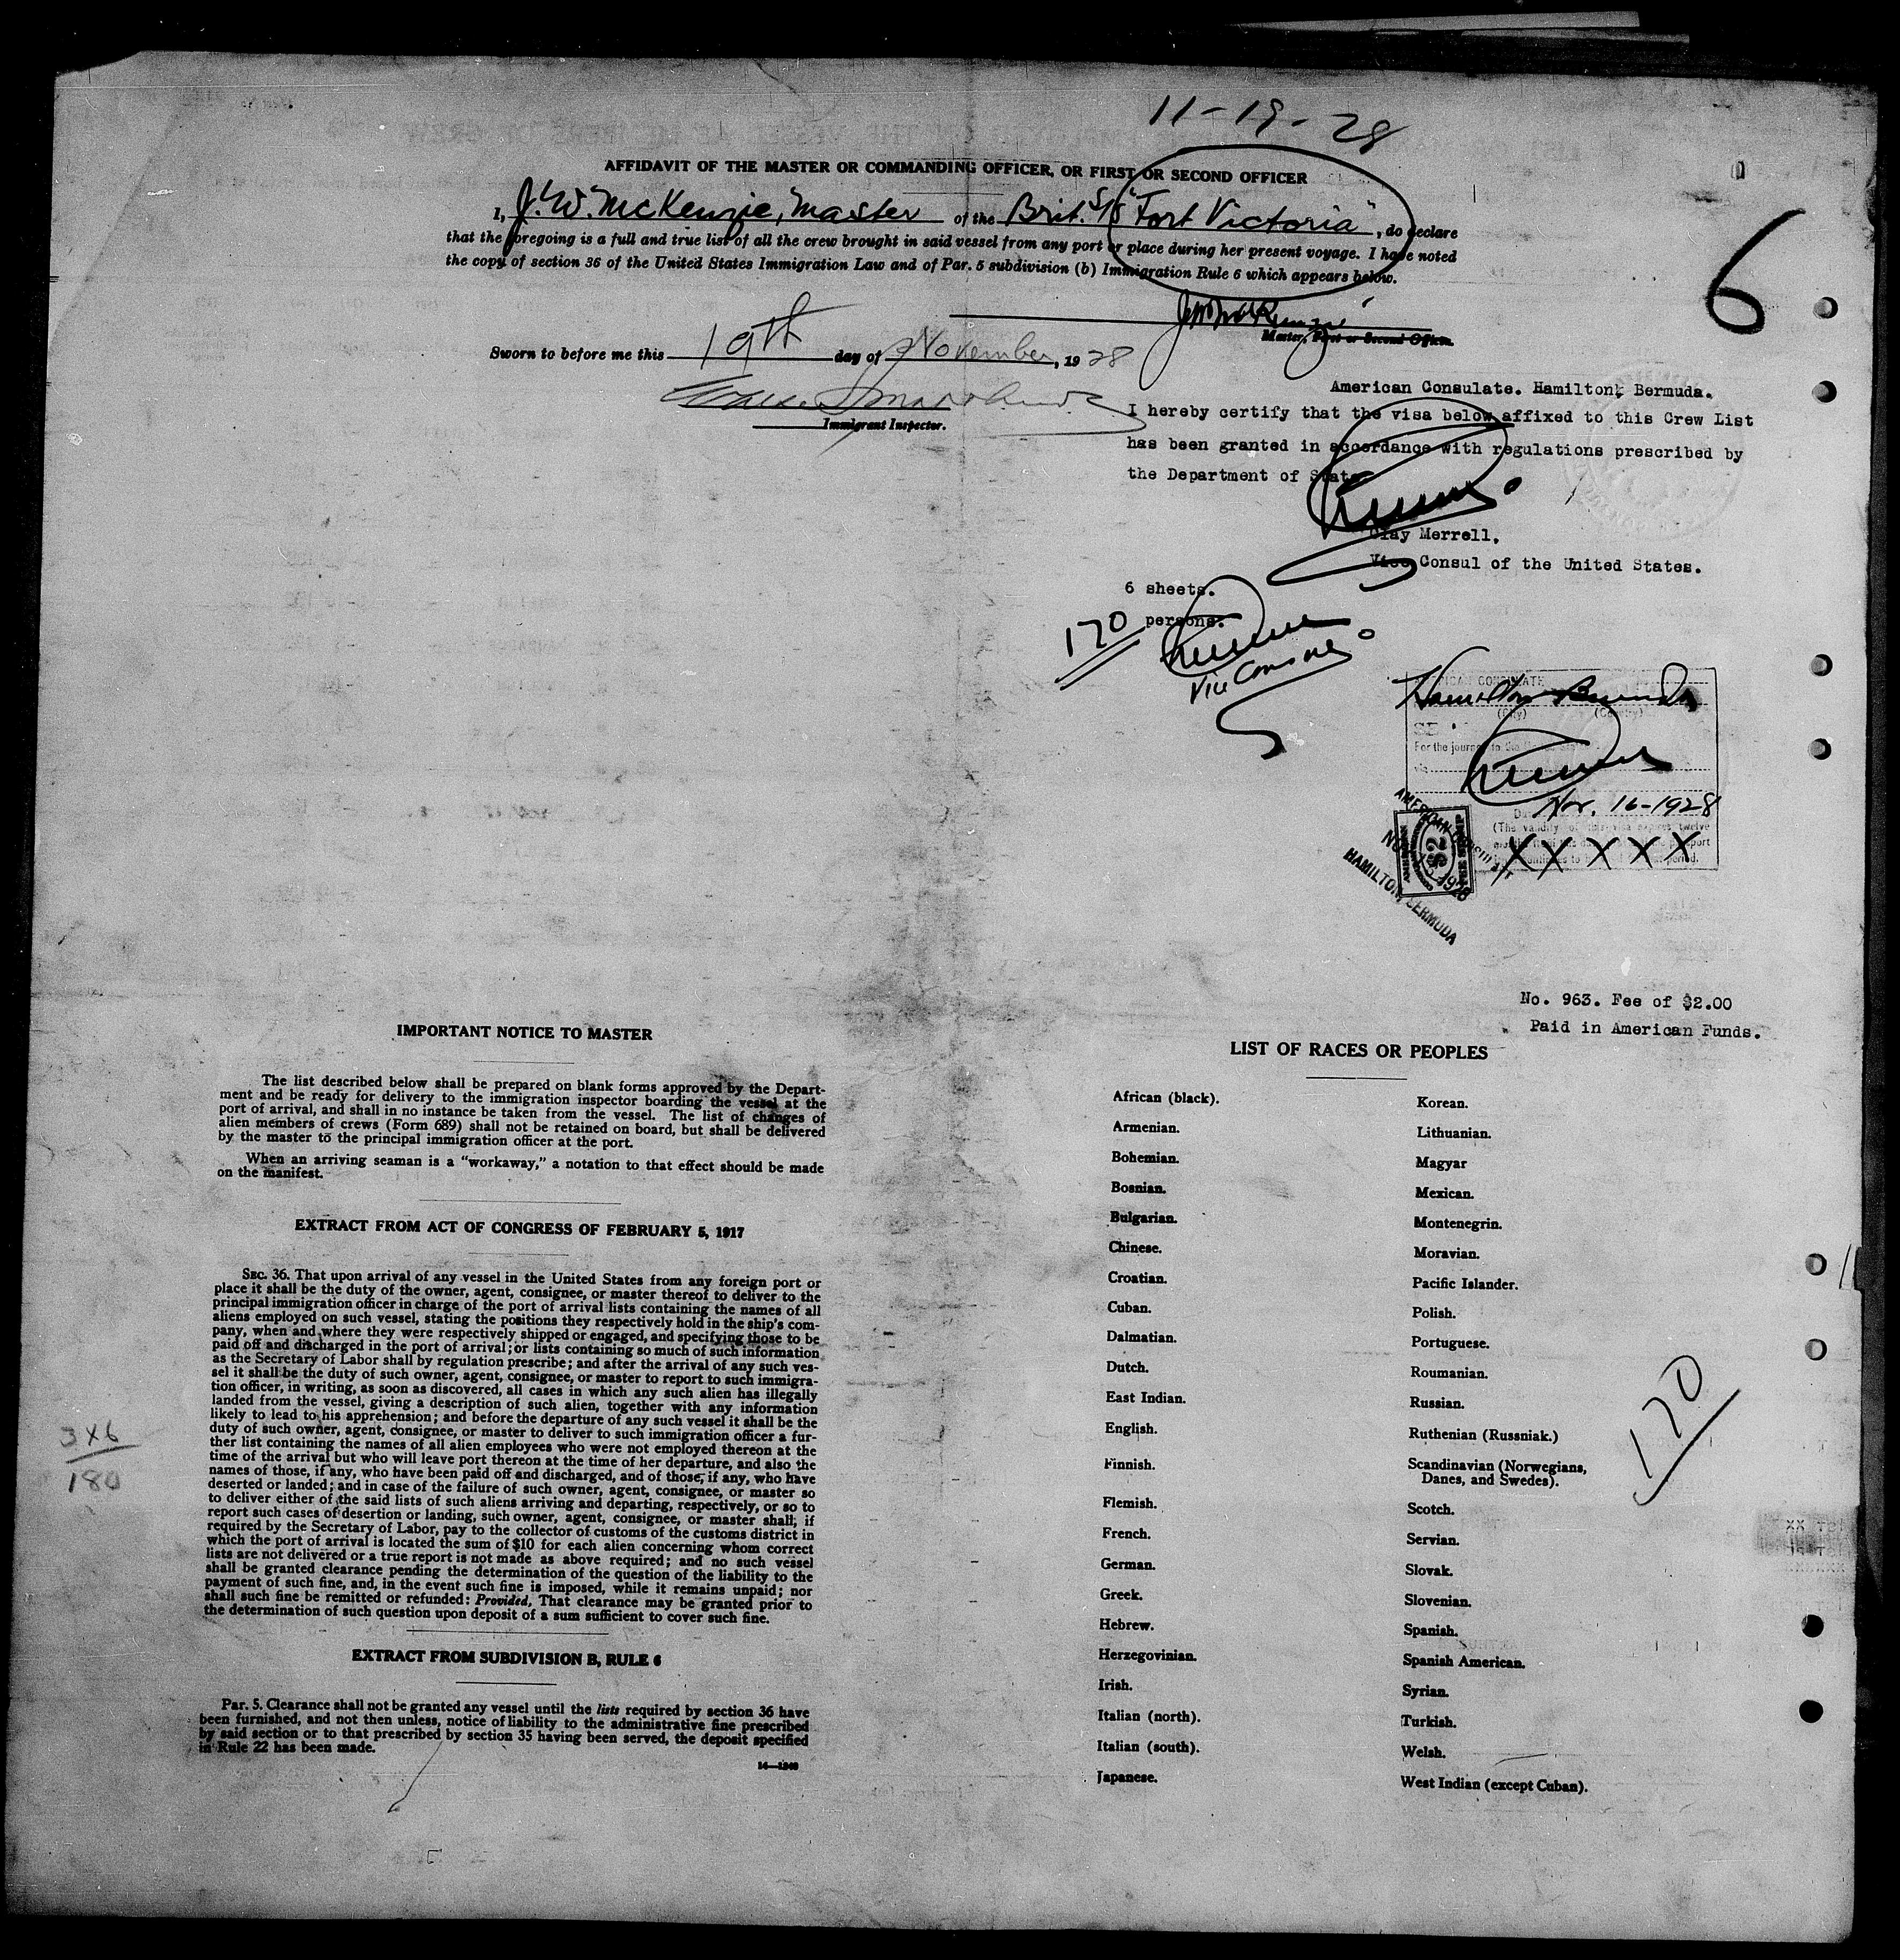 11-19-28
AFFIDAVIT OF THE MASTER OR COMMANDING OFFICER, OR FIRST OR SECOND OFFICER
I, J. W. McKenzie, Master of the Brit. S/S "Fort Victoria", do declare
that the foregoing is a full and true list of all the crew brought in said vessel from any port or place during her present voyage. I have noted
the copy of section 36 of the United States Immigration Law and of Par. 5 subdivision (b) Immigration Rule 6 which appears below.
6
Master, First or Second Officer.
Sworn to before me this 19th day of November, 1928
Immigrant Inspector.
American Consulate. Hamilton, Bermuda.
I hereby certify that the visa below affixed to this Crew List
has been granted in accordance with regulations prescribed by
the Department of State.
Clay Merrell,
Vice Consul of the United States.
6 sheets.
170 persons.
Vice Consul
AMERICAN CONSULATE
Hamilton Bermuda
(City) (Country)
For the journey to the United States
via
Nov. 16-1928
(The validity of this visa expires twelve
X X X X X
AMERICAN CONSULATE
$2
HAMILTON, BERMUDA
No. 963. Fee of $2.00
Paid in American Funds.
IMPORTANT NOTICE TO MASTER
The list described below shall be prepared on blank forms approved by the Depart-
ment and be ready for delivery to the immigration inspector boarding the vessel at the
port of arrival, and shall in no instance be taken from the vessel. The list of changes of
alien members of crews (Form 689) shall not be retained on board, but shall be delivered
by the master to the principal immigration officer at the port.
When an arriving seaman is a "workaway," a notation to that effect should be made
on the manifest.
EXTRACT FROM ACT OF CONGRESS OF FEBRUARY 5, 1917
SEC. 36. That upon arrival of any vessel in the United States from any foreign port or
place it shall be the duty of the owner, agent, consignee, or master thereof to deliver to the
principal immigration officer in charge of the port of arrival lists containing the names of all
aliens employed on such vessel, stating the positions they respectively hold in the ship's com-
pany, when and where they were respectively shipped or engaged, and specifying those to be
paid off and discharged in the port of arrival; or lists containing so much of such information
as the Secretary of Labor shall by regulation prescribe; and after the arrival of any such ves-
sel it shall be the duty of such owner, agent, consignee, or master to report to such immigra-
tion officer, in writing, as soon as discovered, all cases in which any such alien has illegally
landed from the vessel, giving a description of such alien, together with any information
likely to lead to his apprehension; and before the departure of any such vessel it shall be the
duty of such owner, agent, consignee, or master to deliver to such immigration officer a fur-
ther list containing the names of all alien employees who were not employed thereon at the
time of the arrival but who will leave port thereon at the time of her departure, and also the
names of those, if any, who have been paid off and discharged, and of those, if any, who have
deserted or landed; and in case of the failure of such owner, agent, consignee, or master so
to deliver either of the said lists of such aliens arriving and departing, respectively, or so to
report such cases of desertion or landing, such owner, agent, consignee, or master shall, if
required by the Secretary of Labor, pay to the collector of customs of the customs district in
which the port of arrival is located the sum of $10 for each alien concerning whom correct
lists are not delivered or a true report is not made as above required; and no such vessel
shall be granted clearance pending the determination of the question of the liability to the
payment of such fine, and, in the event such fine is imposed, while it remains unpaid; nor
shall such fine be remitted or refunded: Provided, That clearance may be granted prior to
the determination of such question upon deposit of a sum sufficient to cover such fine.
3x6
180
EXTRACT FROM SUBDIVISION B, RULE 6
Par. 5. Clearance shall not be granted any vessel until the lists required by section 36 have
been furnished, and not then unless, notice of liability to the administrative fine prescribed
by said section or to that prescribed by section 35 having been served, the deposit specified
in Rule 22 has been made.
14—1240
LIST OF RACES OR PEOPLES
African (black).
Armenian.
Bohemian.
Bosnian.
Bulgarian.
Chinese.
Croatian.
Cuban.
Dalmatian.
Dutch.
East Indian.
English.
Finnish.
Flemish.
French.
German.
Greek.
Hebrew.
Herzegovinian.
Irish.
Italian (north).
Italian (south).
Japanese.
Korean.
Lithuanian.
Magyar
Mexican.
Montenegrin.
Moravian.
Pacific Islander.
Polish.
Portuguese.
Roumanian.
Russian.
Ruthenian (Russniak.)
Scandinavian (Norwegians,
Danes, and Swedes).
Scotch.
Servian.
Slovak.
Slovenian.
Spanish.
Spanish American.
Syrian.
Turkish.
Welsh.
West Indian (except Cuban).
170